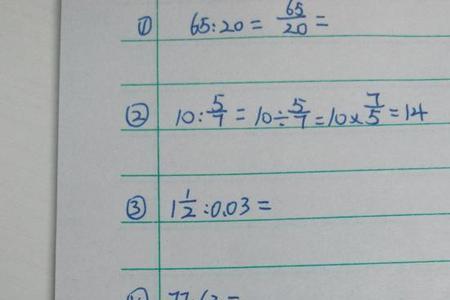 ① 65:20 = 65/20 =
② 10:5/7 = 10÷5/7 = 10×7/5 = 14
③ 1 1/2 :0.03 =